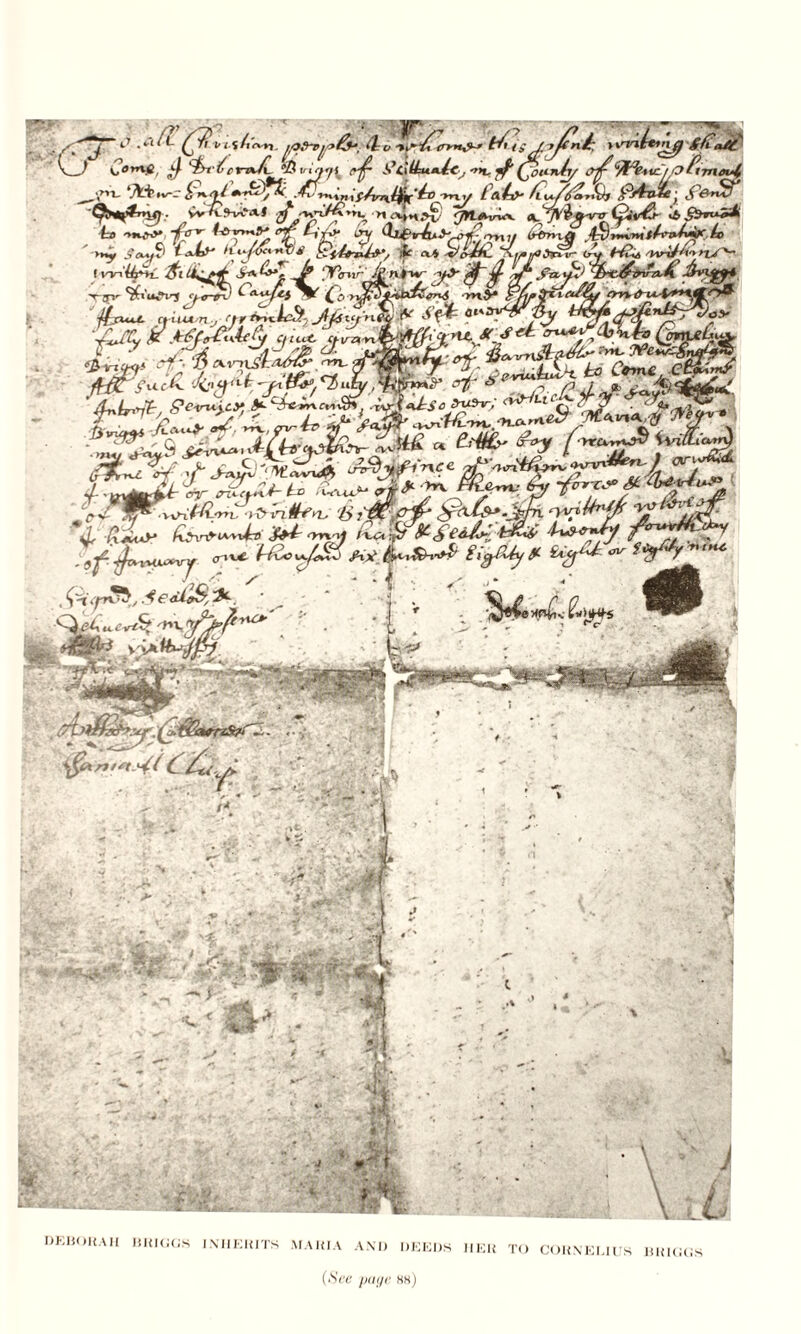 To all Christian people, to whome this psent writeing shall
Come, I Deborah Briggs of Scittuate, in ye County of New plimouth
in New-England, & Administratrix to my late husbands Estate; Send
Greeting. Whereas ye within named Maria a Negro Girle is Servant
to mee, for terme of life by Vertue of my being Administratrix to
my sayd late husbands Estate, & as doth appeare by this within
written Bill of Sale. Now Know ye yt I ye sayd Deborah Briggs
for divers good Causes & Considerations me Especially moueing
Haue giuen, granted, Assigned & Set ouer & By these psents, Doe
fully & Absolutely giue grant Assigne, & Set ouer Vnto Cornelius
Briggs of Barnstable in ye County of Barnstable in New-England
All such Right title, Duty, terme of Seruitude to Come, Claime
Intrest, Seruice, & Demand, wtsoeuer, which I ye sayd Deborah
Briggs haue of, in, or to ye sayd within named Maria, ye Negro
my sayd Seruant together with a little boy (named William)
borne of ye sayd Marias body since ye within written or which
I might or ought to haue of & in them by force & Vertue
of ye within written Bill of Sale. In wittness whereof
I haue hereunto Set my hand & Seale this twenty fourth day
of January one thousand six hundred Eighty & Eight or Eighty nine
Signed, Sealed, &
Deliuered in ye psence
of us wittnesses
Deborah Briggs
Anthony Collamer
Samuell Clap
DEBORAH BRIGGS INHERITS MARIA AND DEEDS HER TO CORNELIUS BRIGGS
(See page 88)